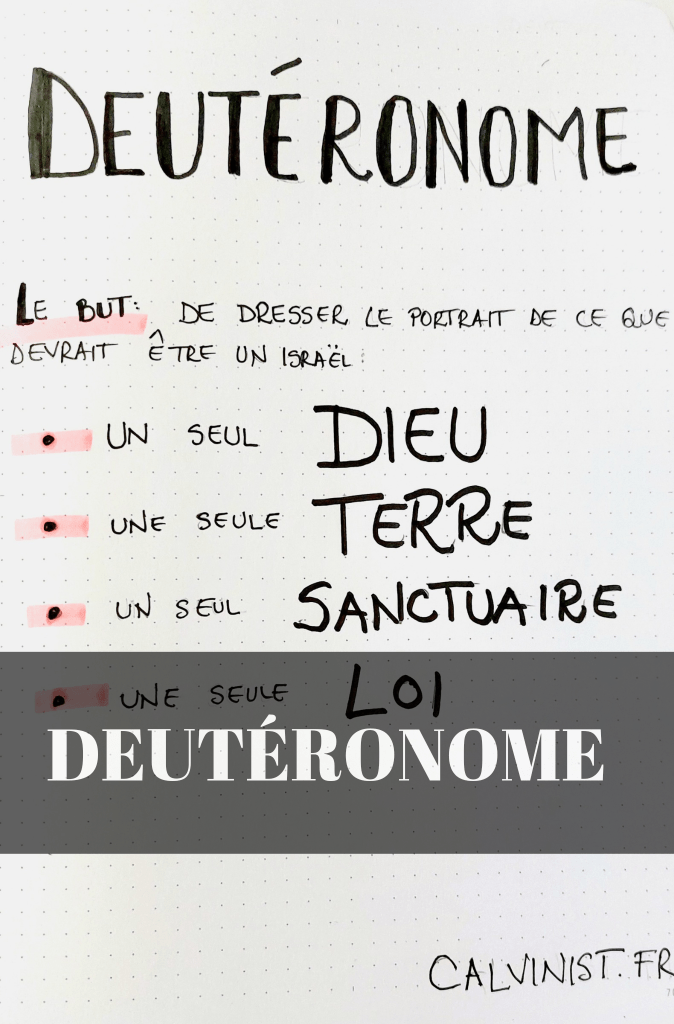 DEUTÉRONOME
LE BUT: DE DRESSER LE PORTRAIT DE CE QUE
DEVRAIT ÊTRE UN ISRAËL:
• UN SEUL DIEU
• UNE SEULE TERRE
• UN SEUL SANCTUAIRE
• UNE SEULE LOI
DEUTÉRONOME
CALVINIST.FR